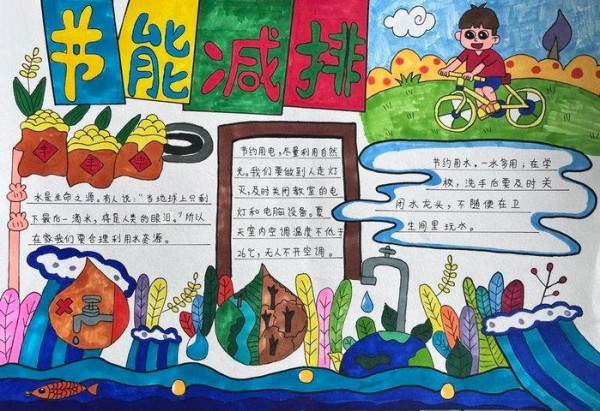 节能减排
丰
丰
丰
水是生命之源。有人说:"当地球上只剩
下最后一滴水,将是人类的眼泪。"所以
在家我们要合理利用水资源。
节约用电,尽量利用自然
光。我们要做到人走灯
灭,及时关闭教室的电
灯和电脑设备。夏
天室内空调温度不低于
26℃,无人不开空调。
节约用水,一水多用;在学
校,洗手后要及时关
闭水龙头,不随便在卫
生间里玩水。